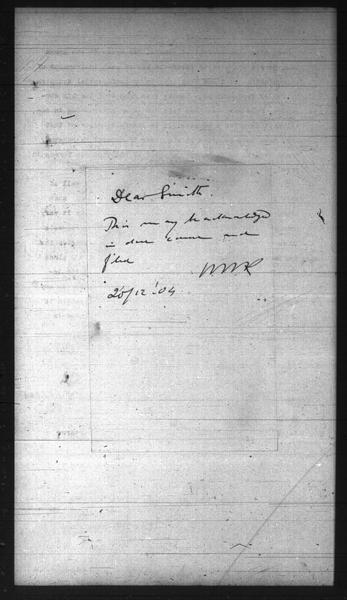 Dear Smith.
This may be acknowledged
in due course and
filed
26/12/04